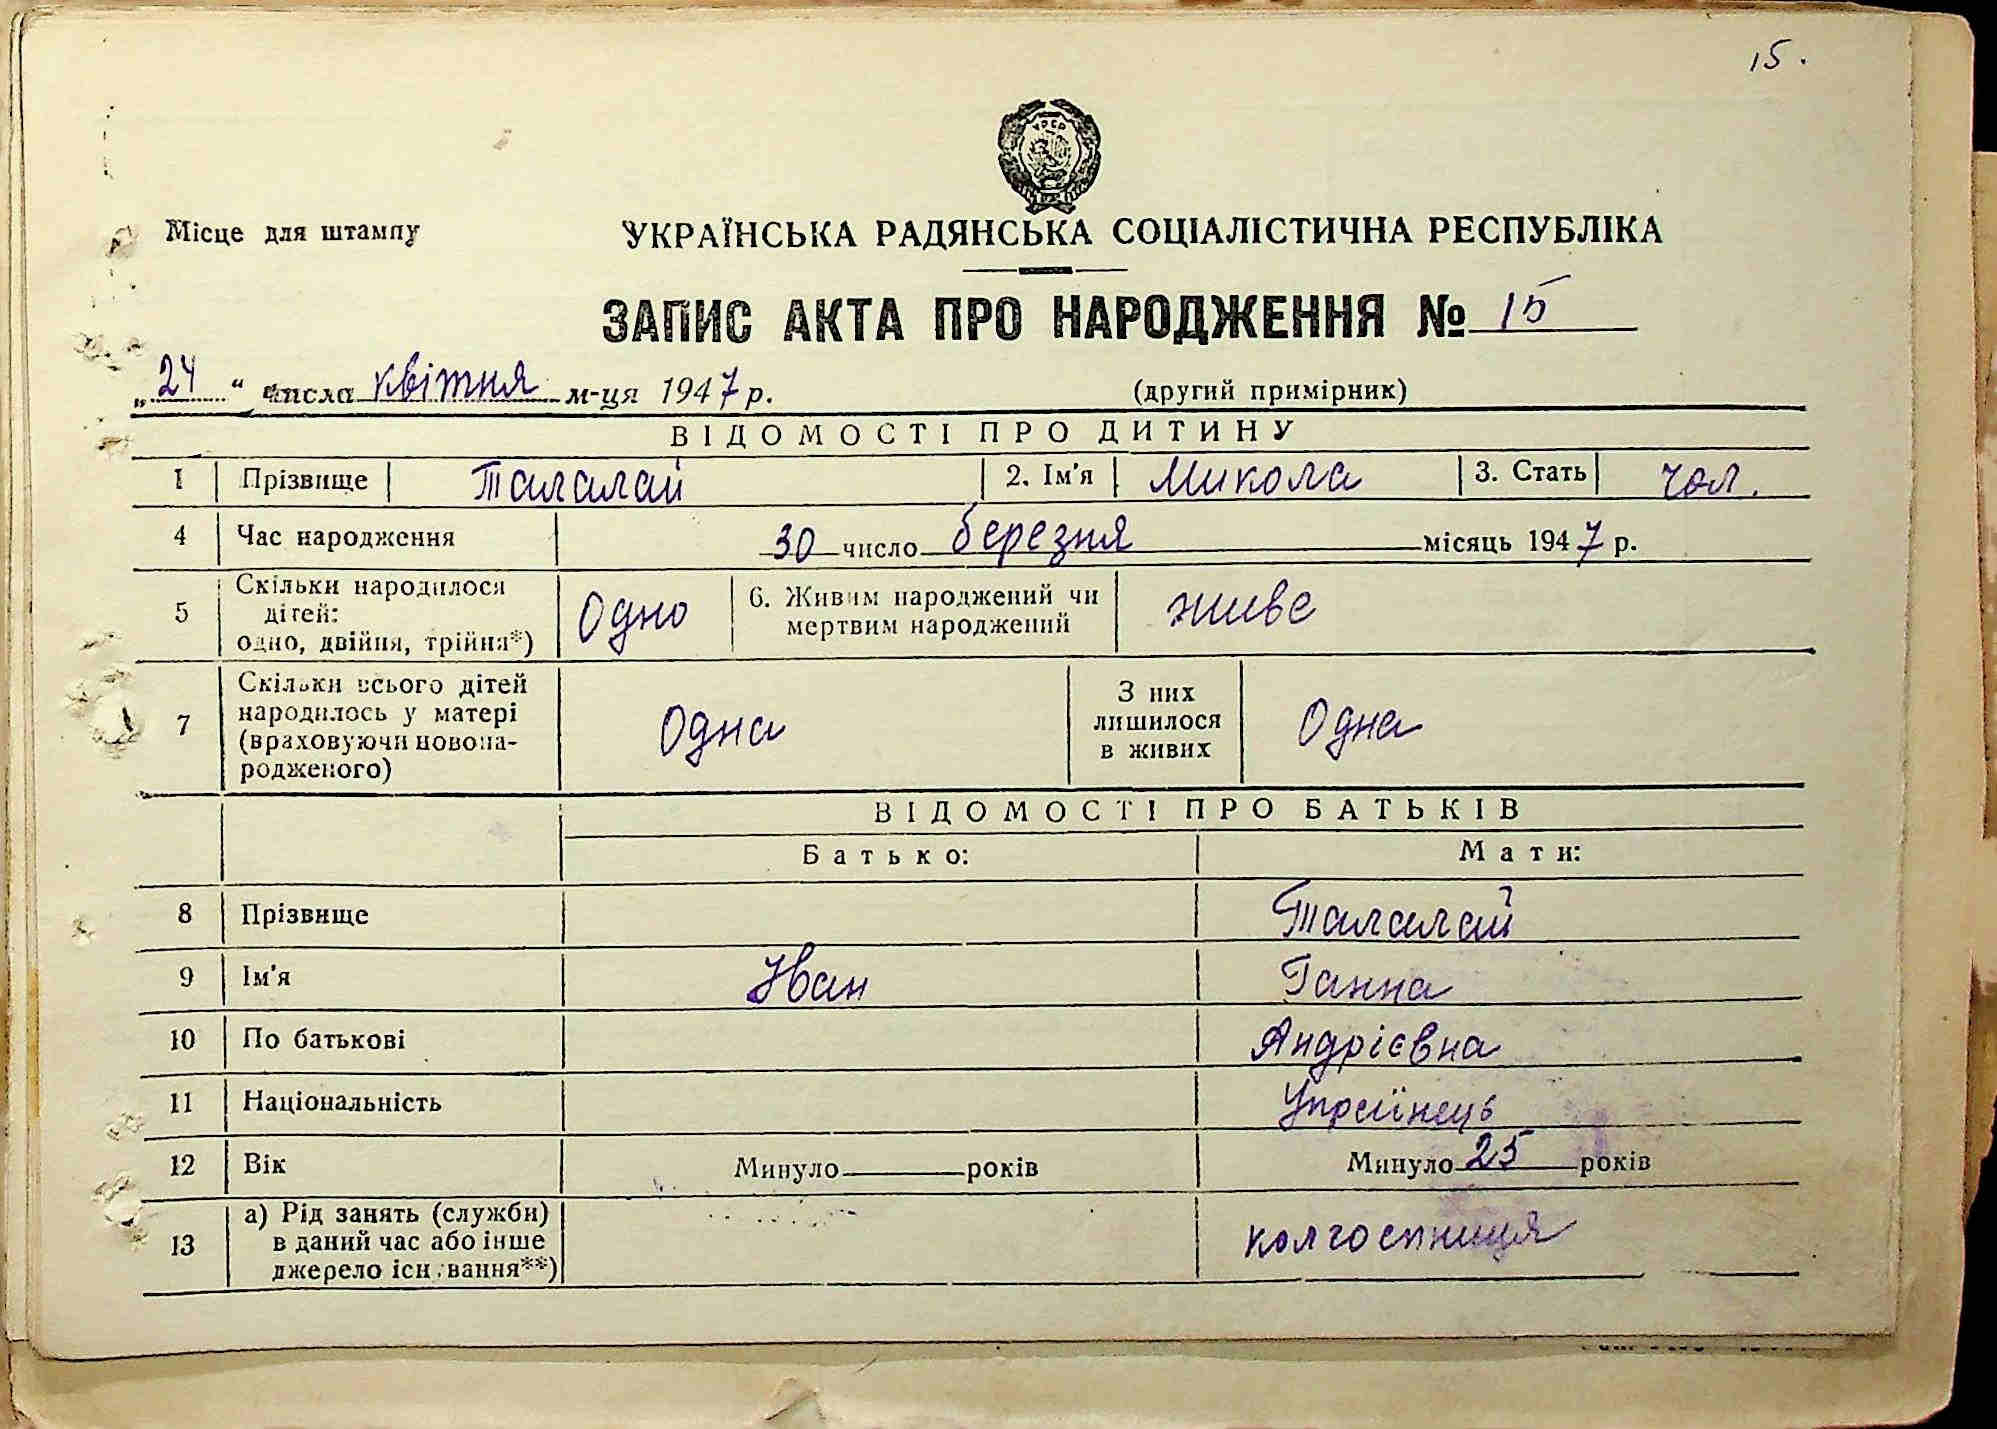 15.
УРСР
Місце для штампу
УКРАЇНСЬКА РАДЯНСЬКА СОЦІАЛІСТИЧНА РЕСПУБЛІКА
ЗАПИС АКТА ПРО НАРОДЖЕННЯ № 15
„24“ числа квітня м-ця 1947 р. (другий примірник)
ВІДОМОСТІ ПРО ДИТИНУ
1 Прізвище Талалай 2. Ім'я Микола 3. Стать чол.
4 Час народження 30 число березня місяць 1947 р.
5 Скільки народилося дітей: одно, двійня, трійня*) Одно 6. Живим народжений чи мертвим народжений живе
7 Скільки всього дітей народилось у матері (враховуючи новонародженого) Одна З них лишилося в живих Одна
ВІДОМОСТІ ПРО БАТЬКІВ
Батько: Мати:
8 Прізвище Талалай
9 Ім'я Іван Ганна
10 По батькові Андрієвна
11 Національність Українець
12 Вік Минуло років Минуло 25 років
13 а) Рід занять (служби) в даний час або інше джерело існування**) колгоспниця